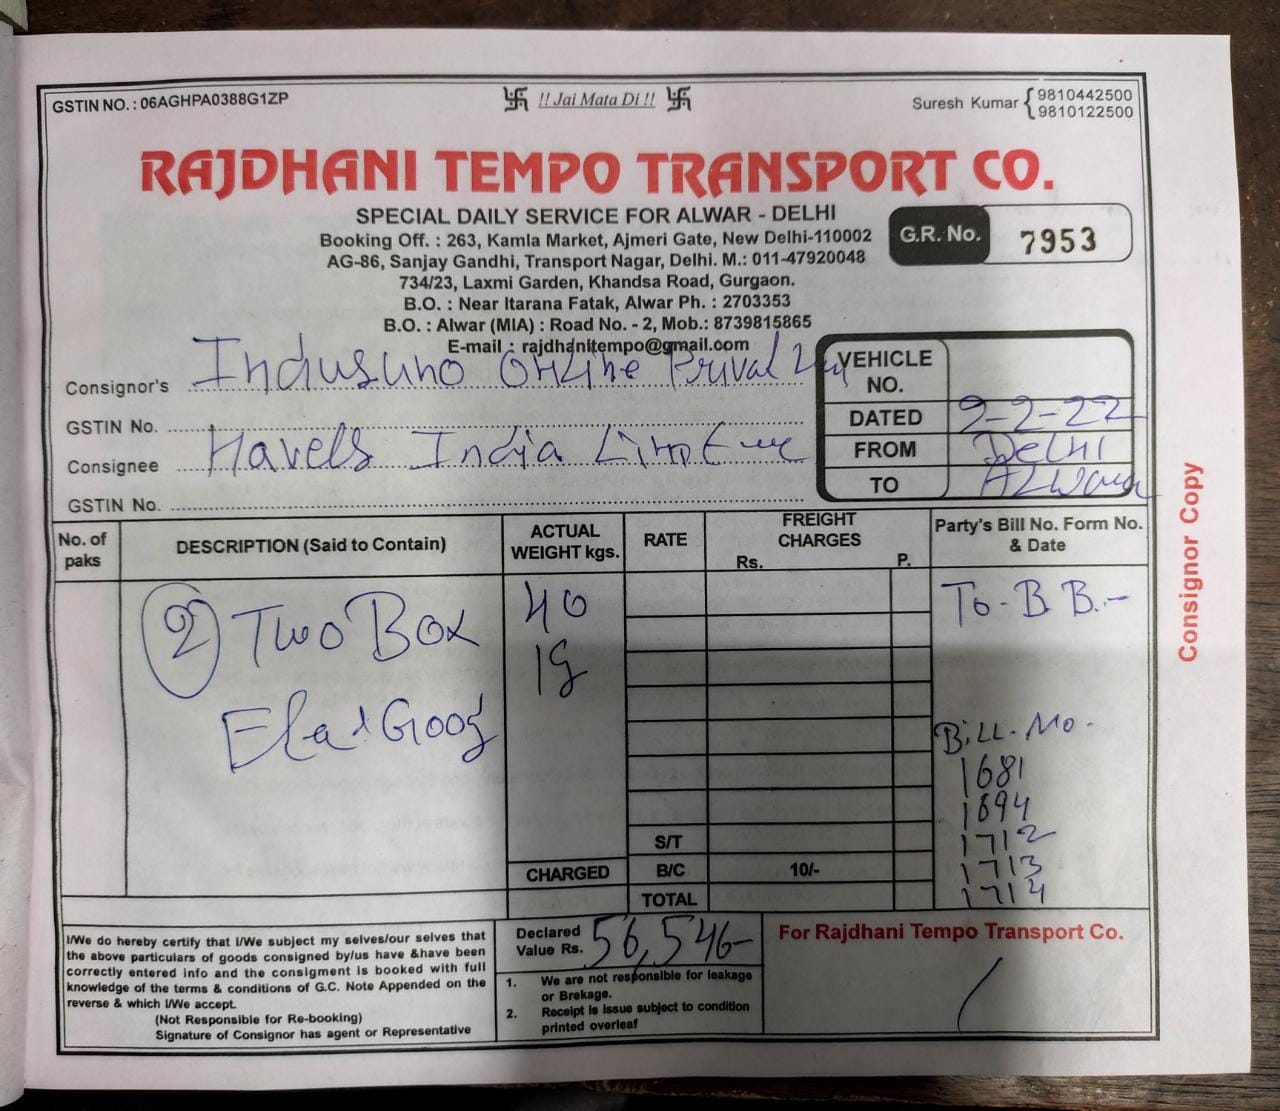 GSTIN NO. : 06AGHPA0388G1ZP
卐 !! Jai Mata Di !! 卐
Suresh Kumar { 9810442500
9810122500
RAJDHANI TEMPO TRANSPORT CO.
SPECIAL DAILY SERVICE FOR ALWAR - DELHI
Booking Off. : 263, Kamla Market, Ajmeri Gate, New Delhi-110002
AG-86, Sanjay Gandhi, Transport Nagar, Delhi. M.: 011-47920048
734/23, Laxmi Garden, Khandsa Road, Gurgaon.
B.O. : Near Itarana Fatak, Alwar Ph. : 2703353
B.O. : Alwar (MIA) : Road No. - 2, Mob.: 8739815865
E-mail : rajdhanitempo@gmail.com
G.R. No. 7953
Consignor's Online
GSTIN No.
Consignee Havels India
GSTIN No.
VEHICLE NO.
DATED 9-2-22
FROM Delhi
TO
No. of paks
DESCRIPTION (Said to Contain)
ACTUAL WEIGHT kgs.
RATE
FREIGHT CHARGES
Rs. P.
Party's Bill No. Form No. & Date
2 Two Box
40
To - B B. -
Bill. No -
1681
1694
1712
1713
1714
S/T
CHARGED
B/C 10/-
TOTAL
I/We do hereby certify that I/We subject my selves/our selves that
the above particulars of goods consigned by/us have &have been
correctly entered info and the consigment is booked with full
knowledge of the terms & conditions of G.C. Note Appended on the
reverse & which I/We accept.
(Not Responsible for Re-booking)
Signature of Consignor has agent or Representative
Declared Value Rs. 56,546-
1. We are not responsible for leakage
or Brekage.
2. Receipt is Issue subject to condition
printed overleaf
For Rajdhani Tempo Transport Co.
Consignor Copy